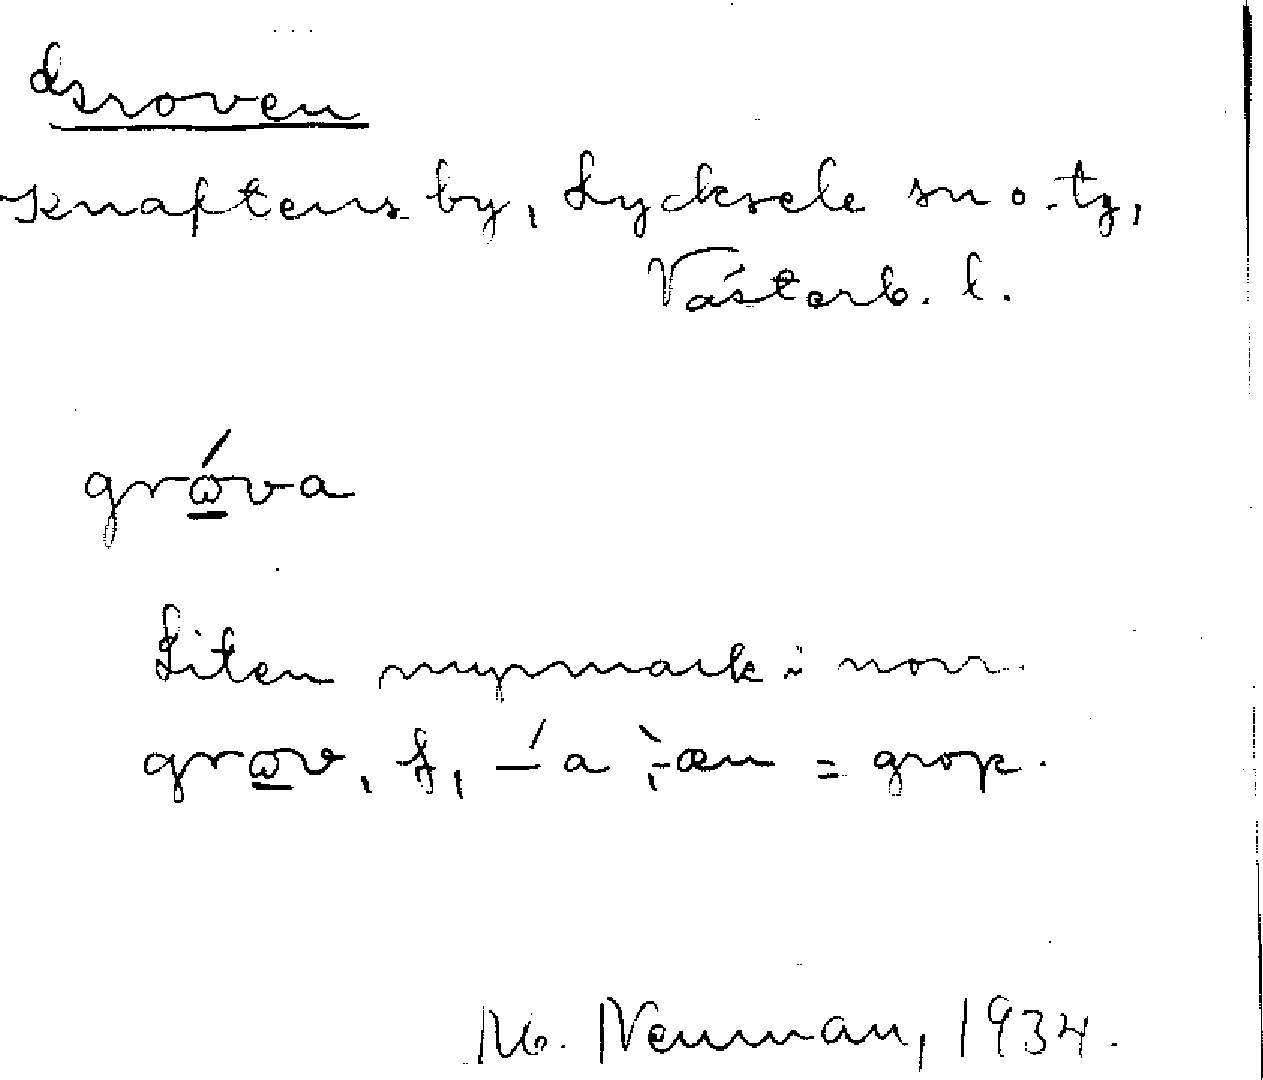 Groven
Knaftens by, Lycksele sn o. tg,
Västerb. l.
gró̲va
Liten myrmark i norr.
gro̲v, f, –́ a ; ̀-æn = grop.
M. Neuman, 1934.